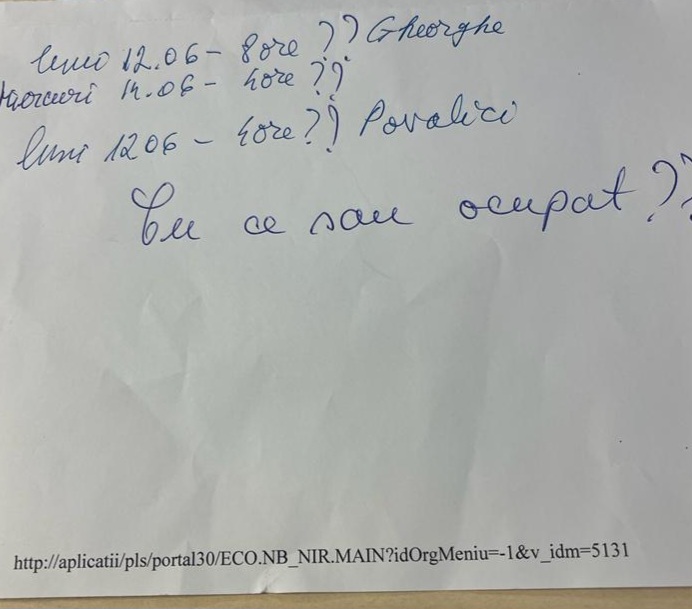 luni 12.06 - 8 ore ?? Gheorghe
Miercuri 14.06 - 4ore ??
luni 1206 - 4ore ?? Povalici
Cu ce sau ocupat ??
http://aplicatii/pls/portal30/ECO.NB_NIR.MAIN?idOrgMeniu=-1&v_idm=5131